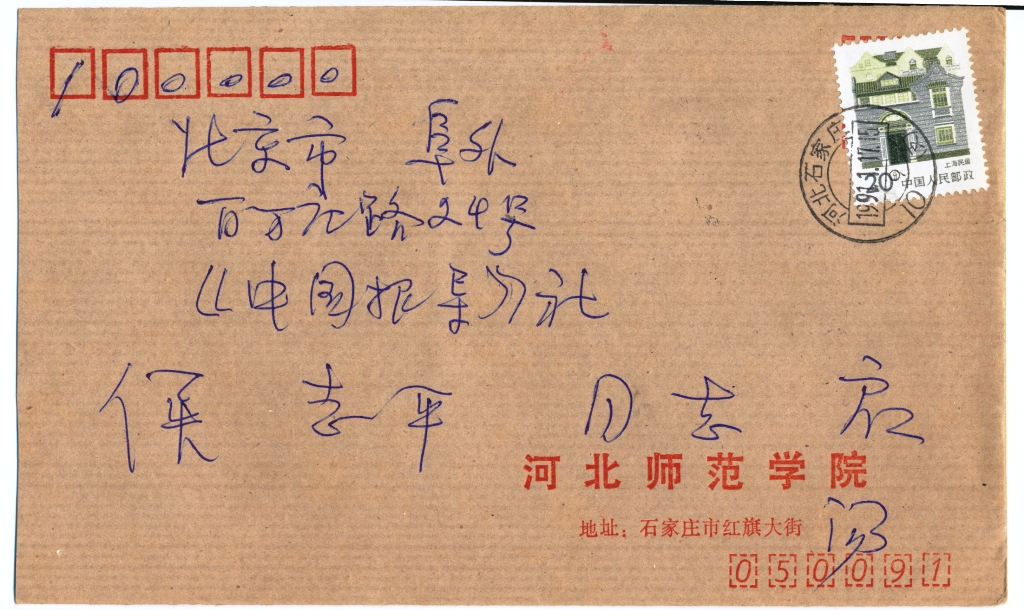 100000
北京市 阜外
百万庄路24号
《中国报导》社
侯志平 同志 启
河北师范学院
地址：石家庄市红旗大街 汤
050091
上海民居
20 中国人民邮政
河北石家庄